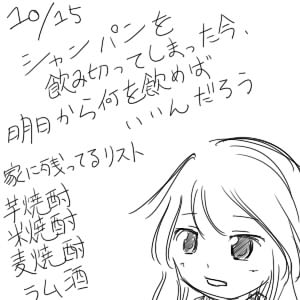 10/15
シャンパンを
飲み切ってしまった今、
明日から何を飲めば
いいんだろう
家に残ってるリスト
芋焼酎
米焼酎
麦焼酎
ラム酒